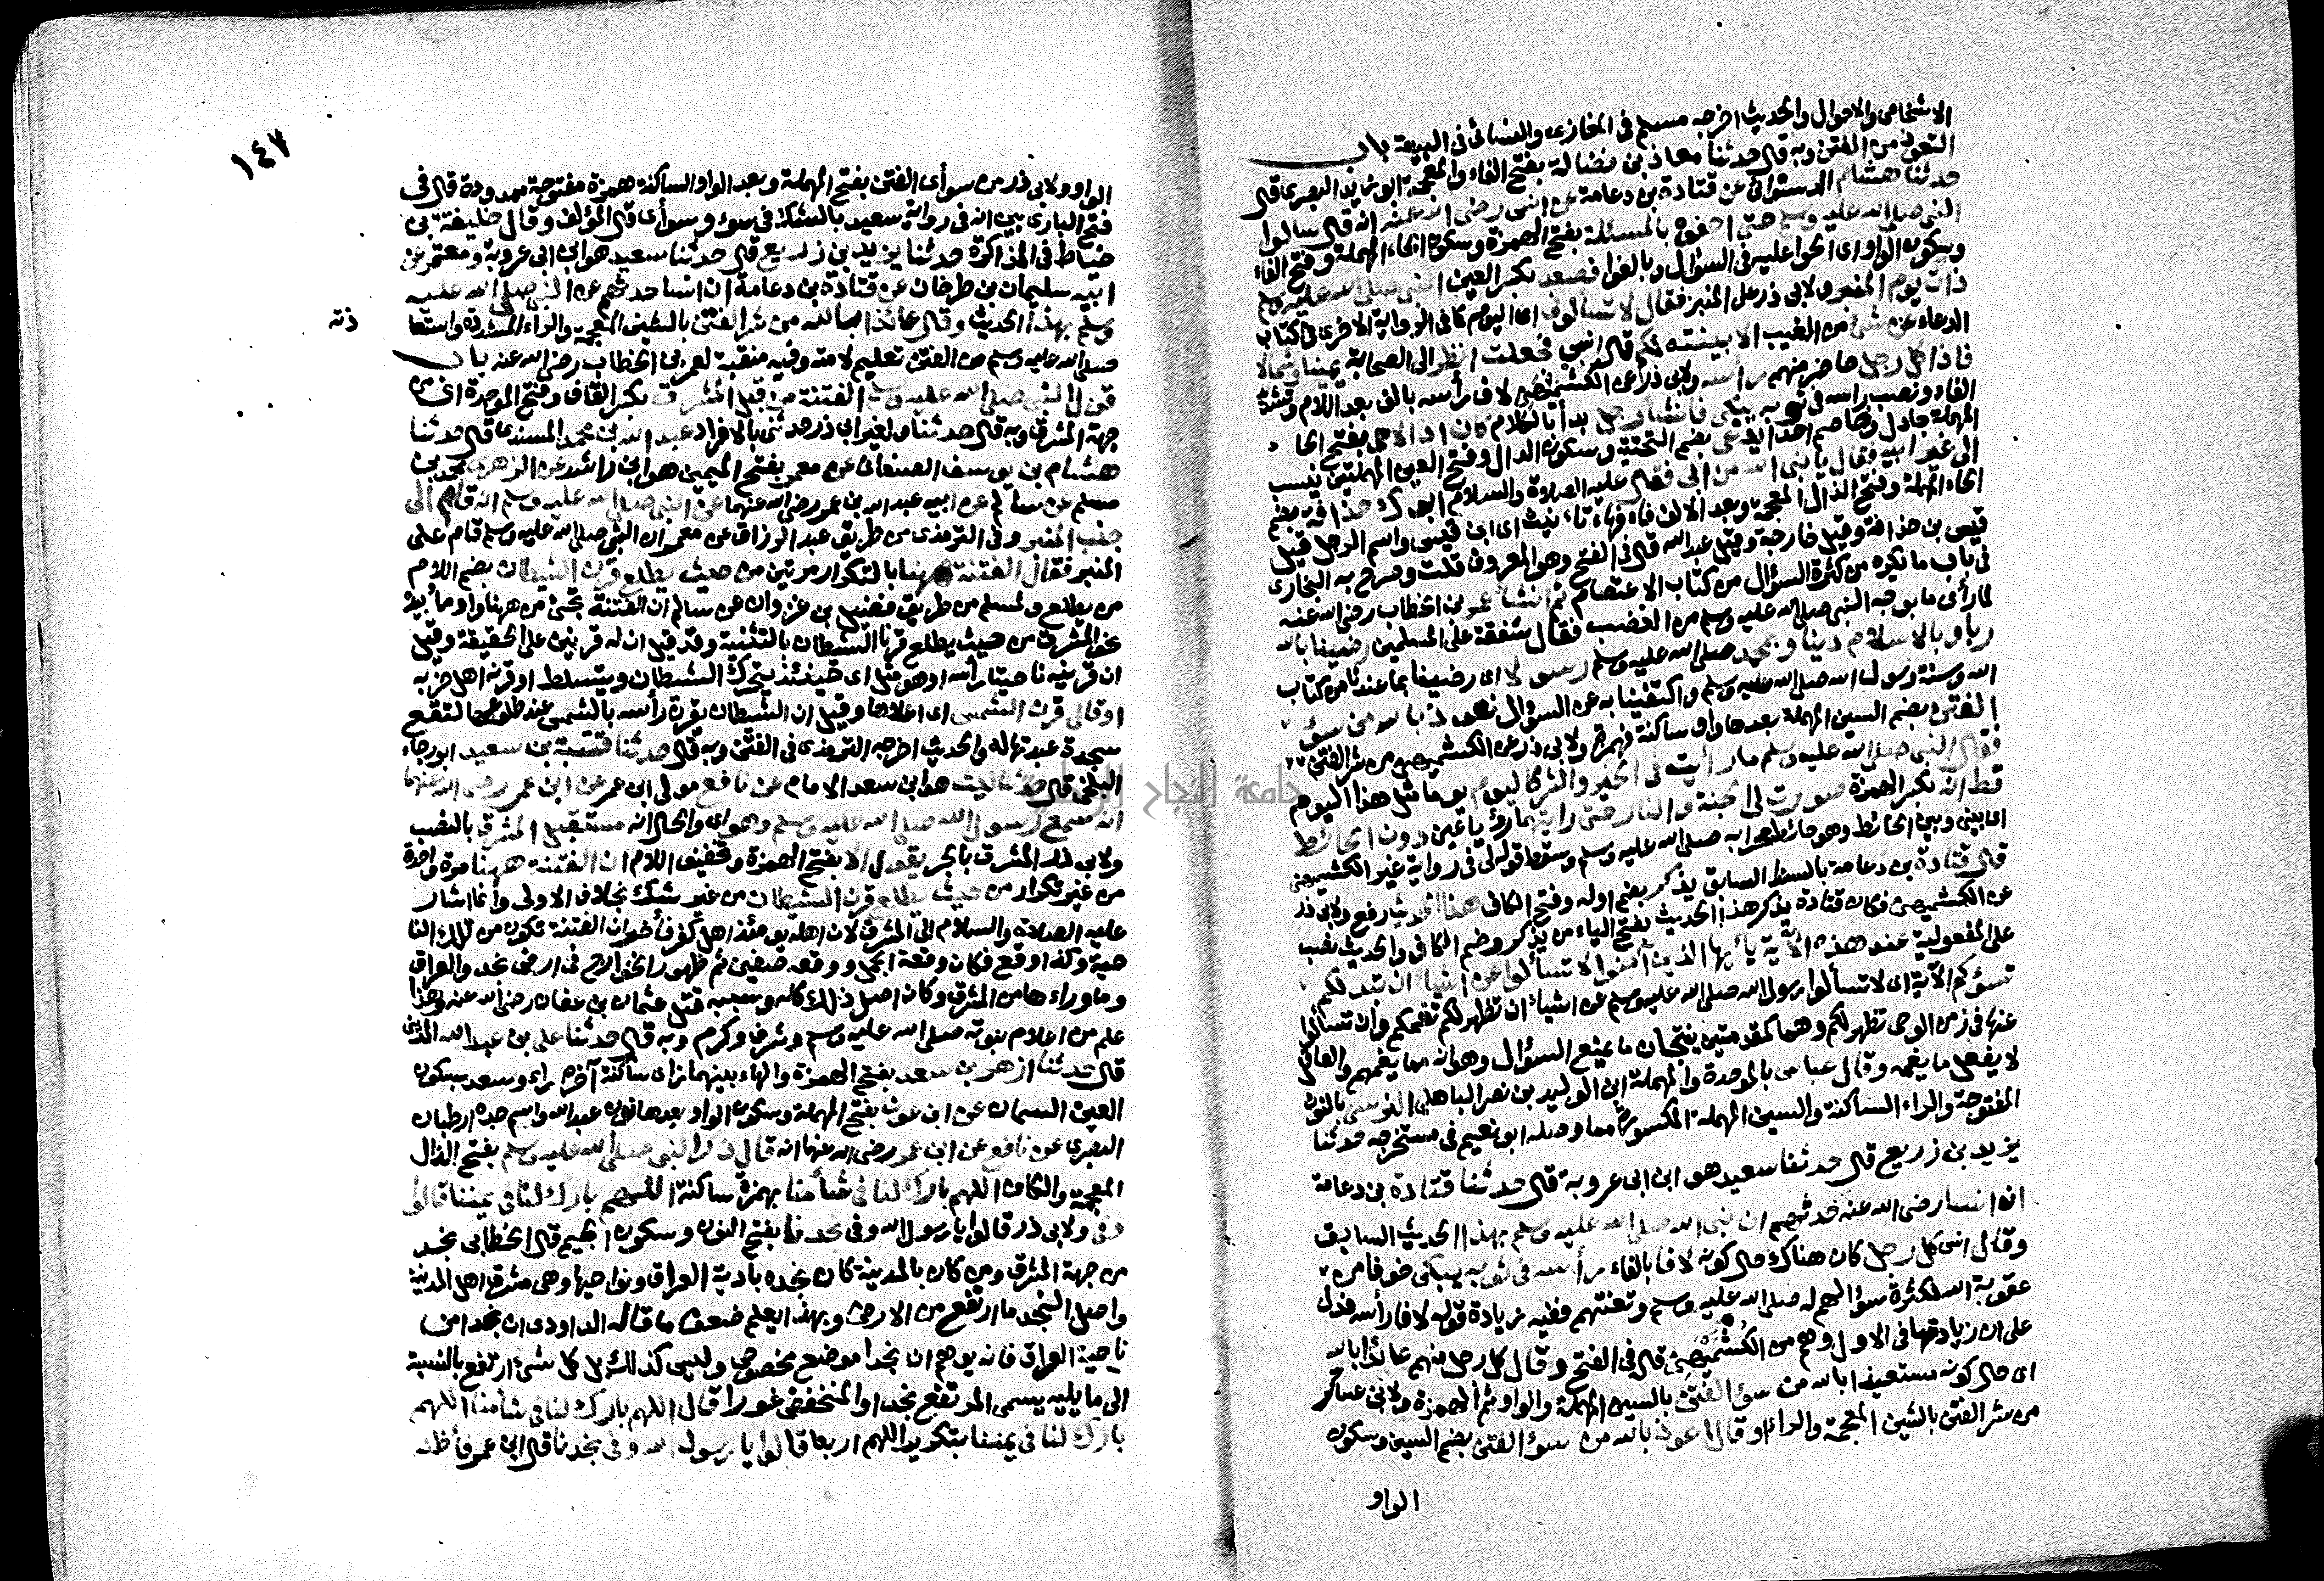 الاشخاص والاحوال والحديث اخرجه مسلم في المغازي والنسائي في البيعة باب
التعوذ من الفتن وبه قال حدثنا معاذ بن فضالة بفتح الفاء والمعجمة ابو زيد البصري قال
حدثنا هشام الدستوائي عن قتادة بن دعامة عن انس رضي الله عنه انه قال سالوا
النبي صلى الله عليه وسلم حتى احفوه بالمسئلة بفتح الهمزة وسكون الحاء المهملة وفتح الفاء
وسكون الواو اي الحوا عليه في السؤال وبالغوا فصعد بكسر العين النبي صلى الله عليه وسلم
ذات يوم المنبر ولابي ذر على المنبر فقال لا تسالوني اي اليوم كما في الرواية الاخرى في كتاب
الدعاء عن شئ من الغيب الا بينته لكم قال انس فجعلت انظر الى الصحابة يمينا وشمالا
فاذا كل رجل حاضر منهم راسه ولابي ذر عن الكشميهني لاف رأسه بالف بعد اللام وتشديد
الفاء ونصب راسه في ثوبه يبكي فانشأ رجل بدأ بالكلام كان اذا لاحى بفتح الحاء
المهملة جادل وخاصم احدا يدعى بضم التحتية وسكون الدال وفتح العين المهملتين ينسب
الى غير ابيه فقال يا نبي الله من ابي فقال عليه الصلاة والسلام ابوك حذافة بضم
الحاء المهملة وفتح الذال المعجمة وبعد الالف فاء فهاء تأنيث اي ابن قيس واسم الرجل قيل
قيس بن حذافة وقيل خارجة وقيل عبد الله قال في الفتح وهو المعروف قلت وصرح به البخاري
في باب ما يكره من كثرة السؤال من كتاب الاعتصام ثم انشأ عمر بن الخطاب رضي الله عنه
لما رأى ما بوجه النبي صلى الله عليه وسلم من الغضب فقال شفقة على المسلمين رضينا بالله
ربا وبالاسلام دينا وبمحمد صلى الله عليه وسلم رسولا اي رضينا بما عندنا من كتاب
الله وسنة رسول الله صلى الله عليه وسلم واكتفينا به عن السؤال نعوذ بالله من سوء
الفتن بضم السين المهملة بعدها واو ساكنة فهمزة ولابي ذر عن الكشميهني من شر الفتن
فقال النبي صلى الله عليه وسلم ما رأيت في الخير والشر كاليوم يوما مثل هذا اليوم
قط انه بكسر الهمزة صورت لي الجنة والنار حتى رايتهما رؤيا عين دون الحائط
اي بيني وبين الحائط وهو حائط محرابه صلى الله عليه وسلم وسقط قوله لي في رواية غير الكشميهني
قال قتادة بن دعامة بالسند السابق يذكر بضم اوله وفتح الكاف هذا الحديث رفع ولابي ذر
عن الكشميهني فكان قتادة يذكر هذا الحديث بفتح الياء من يذكر وضم الكاف والحديث نصب
على المفعولية عند هذه الآية يأيها الذين آمنوا لا تسألوا عن اشياء ان تبد لكم
تسؤكم الآية اي لا تسألوا رسول الله صلى الله عليه وسلم عن اشياء ان تظهر لكم تغمكم وان تسألوا
عنها في زمن الوحي تظهر لكم وهما كمقدمتين ينتجان ما يمنع السؤال وهو انه مما يغمهم والعاقل
لا يفعل ما يغمه وقال عباس بالموحدة والمهملة ابن الوليد بن نصر الباهلي النرسي بالنون
المفتوحة والراء الساكنة والسين المهملة المكسورة مما وصله ابو نعيم في مستخرجه حدثنا
يزيد بن زريع قال حدثنا سعيد هو ابن ابي عروبة قال حدثنا قتادة بن دعامة
ان انسا رضي الله عنه حدثهم ان نبي الله صلى الله عليه وسلم بهذا الحديث السابق
وقال انس كل رجل كان هناك حال كونه لافا بالفاء رأسه في ثوبه يبكي خوفا من
عقوبة الله لكثرة سؤالهم له صلى الله عليه وسلم وتعنتهم ففيه زيادة قوله لافا رأسه فدل
على ان زيادتها في الاول وهم من الكشميهني قاله في الفتح وقال كل رجل منهم عائذا بالله
اي حال كونه مستعيذا بالله من سوء الفتن بالسين المهملة والواو ثم الهمزة ولابن عساكر
من شر الفتن بالشين المعجمة والراء او قال اعوذ بالله من سوء الفتن بضم السين وسكون
الواو
١٤٧
الواو ولابي ذر من سوأى الفتن بفتح المهملة وبعد الواو الساكنة همزة مفتوحة ممدودة قال في
فتح الباري بين انه في رواية سعيد بالشك في سوء وسوأى قال المؤلف وقال خليفة بن
خياط في المذاكرة حدثنا يزيد بن زريع قال حدثنا سعيد هو ابن ابي عروبة ومعتمر عن
ابيه سليمان بن طرخان عن قتادة بن دعامة ان انسا حدثهم عن النبي صلى الله عليه
وسلم بهذا الحديث وقال عائذا بالله من شر الفتن بالشين المعجمة والراء المشددة واستعا
ذته
صلى الله عليه وسلم من الفتن تعليم لامته وفيه منقبة لعمر بن الخطاب رضي الله عنه باب
قول النبي صلى الله عليه وسلم الفتنة من قبل المشرق بكسر القاف وفتح الموحدة اي من
جهة المشرق وبه قال حدثنا ولغير ابي ذر حدثني بالافراد عبد الله بن محمد المسندي قال حدثنا
هشام بن يوسف الصنعاني عن معمر بفتح الميمين هو ابن راشد عن الزهري محمد بن
مسلم عن سالم عن ابيه عبد الله بن عمر رضي الله عنهما عن النبي صلى الله عليه وسلم انه قام الى
جنب المنبر وفي الترمذي من طريق عبد الرزاق عن معمر ان النبي صلى الله عليه وسلم قام على
المنبر فقال الفتنة ههنا بالتكرار مرتين من حيث يطلع قرن الشيطان بضم اللام
من يطلع ولمسلم من طريق فضيل بن غزوان عن سالم ان الفتنة تجئ من ههنا واومأ بيده
نحو المشرق من حيث يطلع قرنا الشيطان بالتثنية وقد قيل ان له قرنين على الحقيقة وقيل
ان قرنيه ناحيتا رأسه او هو مثل اي حينئذ يتحرك الشيطان ويتسلط او قرنه اهل حزبه
او قال قرن الشمس اي اعلاها وقيل ان الشيطان يقرن رأسه بالشمس عند طلوعها لتقع
سجدة عبدتها له والحديث اخرجه الترمذي في الفتن وبه قال حدثنا قتيبة بن سعيد ابو رجاء
البلخي قال حدثنا ليث هو ابن سعد الامام عن نافع مولى ابن عمر عن ابن عمر رضي الله عنهما
انه سمع رسول الله صلى الله عليه وسلم وهو اي والحال انه مستقبل المشرق بالنصب
ولابي ذر المشرق بالجر يقول ألا بفتح الهمزة وتخفيف اللام ان الفتنة ههنا مرة واحدة
من غير تكرار من حيث يطلع قرن الشيطان من غير شك بخلاف الاولى وانما اشار
عليه الصلاة والسلام الى المشرق لان اهله يومئذ اهل كفر فأخبر ان الفتنة تكون من تلك النا
حية وكذا وقع فكان وقعة الجمل ووقعة صفين ثم ظهور الخوارج في ارض نجد والعراق
وما وراءها من المشرق وكان اصل ذلك كله وسببه قتل عثمان بن عفان رضي الله عنه وهذا
علم من اعلام نبوته صلى الله عليه وسلم وشرف وكرم وبه قال حدثنا علي بن عبد الله المديني
قال حدثنا ازهر بن سعد بفتح الهمزة والهاء بينهما زاي ساكنة آخره راء وسعد بسكون
العين السمان عن ابن عون بفتح المهملة وسكون الواو بعدها نون عبد الله واسم جده ارطبان
البصري عن نافع عن ابن عمر رضي الله عنهما انه قال ذكر النبي صلى الله عليه وسلم بفتح الذال
المعجمة والكاف اللهم بارك لنا في شأمنا بهمزة ساكنة اللهم بارك لنا في يمننا قالوا
وفي ولابي ذر قالوا يا رسول الله وفي نجدنا بفتح النون وسكون الجيم قال الخطابي نجد
من جهة المشرق ومن كان بالمدينة كان نجده بادية العراق ونواحيها وهي مشرق اهل المدينة
واصل النجد ما ارتفع من الارض وبهذا يعلم ضعف ما قاله الداودي ان نجدا من
ناحية العراق فانه يوهم ان نجدا موضع مخصوص وليس كذلك بل كل شئ ارتفع بالنسبة
الى ما يليه يسمى المرتفع نجدا والمنخفض غورا قال اللهم بارك لنا في شأمنا اللهم
بارك لنا في يمننا بتكرير اللهم اربعا قالوا يا رسول الله وفي نجدنا قال ابن عمر فأظنه
جامعة النجاح